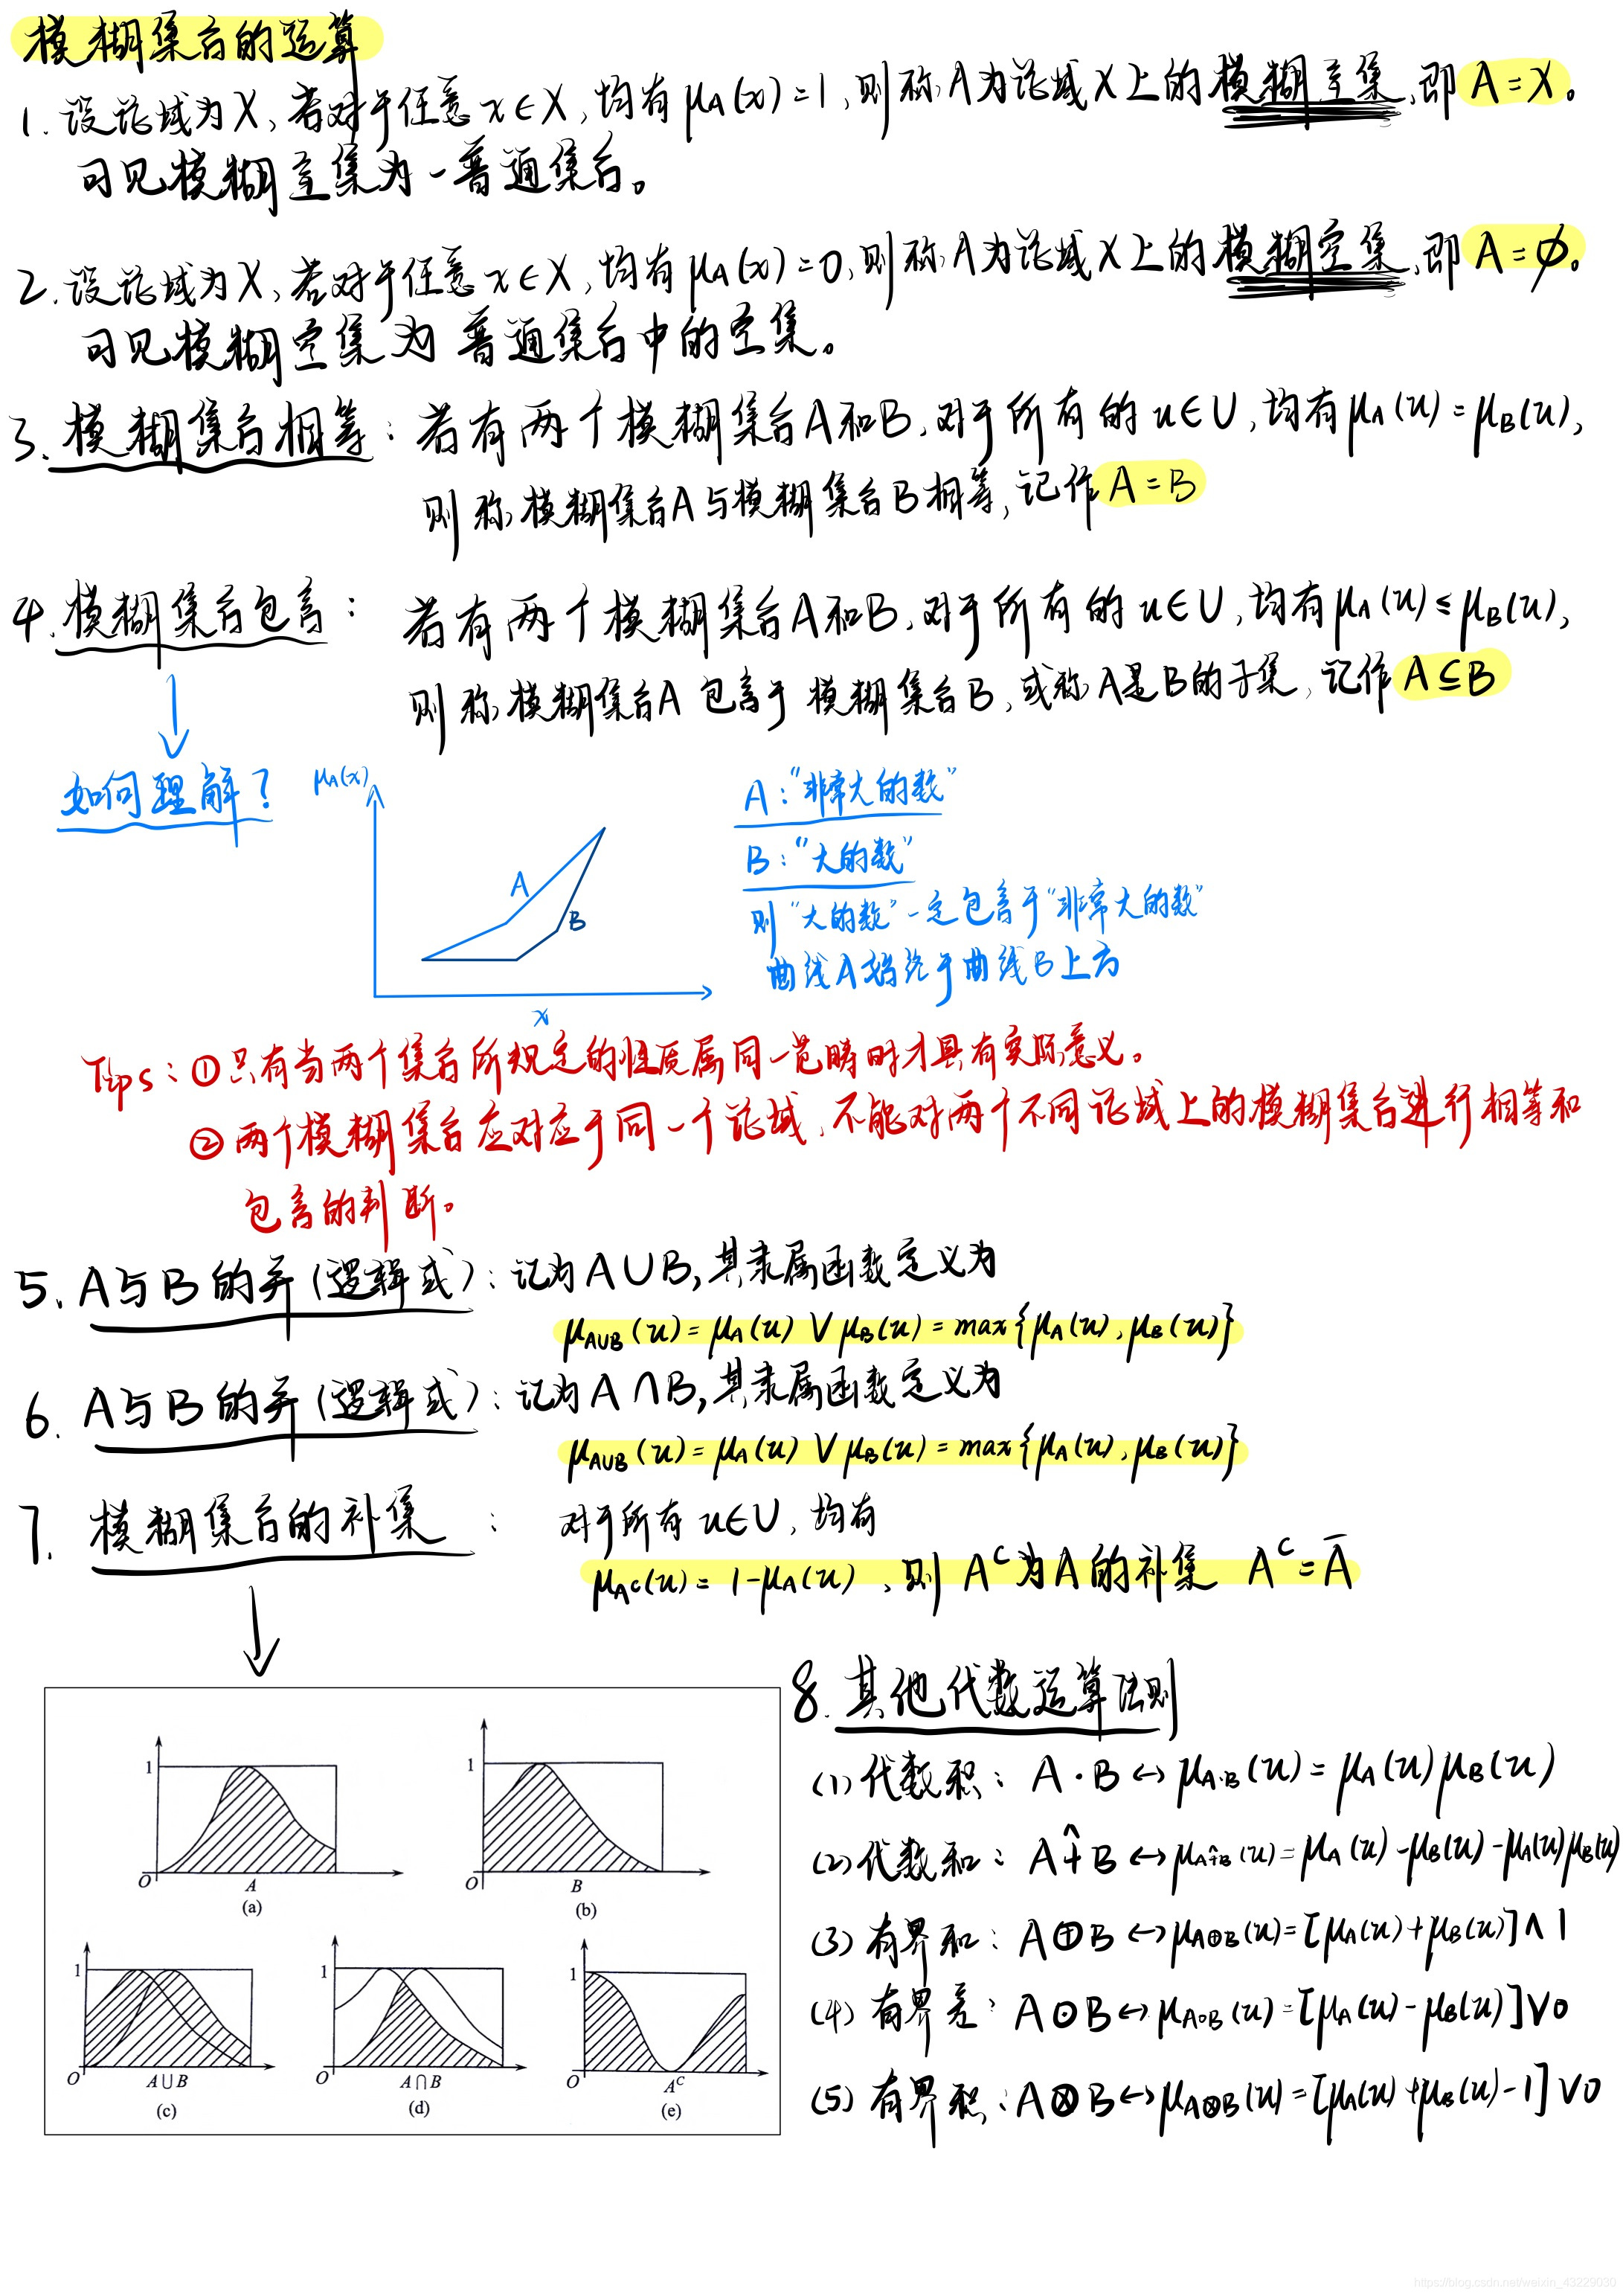 模糊集合的运算
1. 设论域为X,若对于任意x∈X,均有μA(x)=1,则称A为论域X上的模糊全集,即A=X。
可见模糊全集为一普通集合。
2. 设论域为X,若对于任意x∈X,均有μA(x)=0,则称A为论域X上的模糊空集,即A=∅。
可见模糊空集为普通集合中的空集。
3. 模糊集合相等:若有两个模糊集合A和B,对于所有的u∈U,均有μA(u)=μB(u),
则称模糊集合A与模糊集合B相等,记作A=B
4. 模糊集合包含:若有两个模糊集合A和B,对于所有的u∈U,均有μA(u)≤μB(u),
则称模糊集合A包含于模糊集合B,或称A是B的子集,记作A⊆B
如何理解?
μA(x)
A
B
x
A:"非常大的数"
B:"大的数"
则"大的数"一定包含于"非常大的数"
曲线A始终于曲线B上方
Tips:①只有当两个集合所规定的性质属同一范畴时才具有实际意义。
②两个模糊集合应对应于同一个论域,不能对两个不同论域上的模糊集合进行相等和
包含的判断。
5. A与B的并(逻辑或):记为A∪B,其隶属函数定义为
μA∪B(u)=μA(u)∨μB(u)=max{μA(u),μB(u)}
6. A与B的并(逻辑或):记为A∩B,其隶属函数定义为
μA∪B(u)=μA(u)∨μB(u)=max{μA(u),μB(u)}
7. 模糊集合的补集:对于所有u∈U,均有
μAᶜ(u)=1-μA(u),则Aᶜ为A的补集 Aᶜ=Ā
1
O
A
(a)
1
O
B
(b)
1
O
A∪B
(c)
1
O
A∩B
(d)
1
O
Aᶜ
(e)
8. 其他代数运算法则
(1)代数积:A·B↔μA·B(u)=μA(u)μB(u)
(2)代数和:A+̂B↔μA+̂B(u)=μA(u)-μB(u)-μA(u)μB(u)
(3)有界和:A⊕B↔μA⊕B(u)=[μA(u)+μB(u)]∧1
(4)有界差:A⊙B↔μA⊙B(u)=[μA(u)-μB(u)]∨0
(5)有界积:A⊗B↔μA⊗B(u)=[μA(u)+μB(u)-1]∨0
https://blog.csdn.net/weixin_43229030